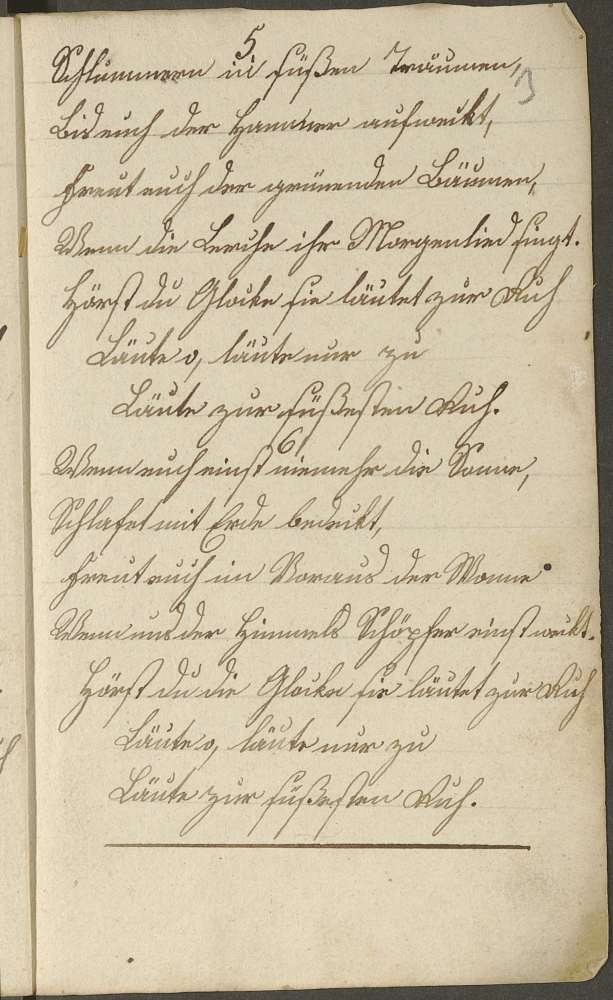 5
Schlummern in süßen Träumen,
3
Bis euch der Hammer aufweckt,
Freut euch der grünenden Bäumen,
Wenn die Lerche ihr Morgenlied singt.
Hörst du Glocke sie läutet zur Ruh
Läute o, läute nur zu
Läute zur süßesten Ruh.
6
Wenn euch einst niemehr die Sonne,
Schlafet mit Erde bedeckt,
Freut euch im Voraus der Wonne
Wenn uns der Himmels Schöpfer einst weckt.
Hörst du die Glocke sie läutet zur Ruh
Läute o, läute nur zu
Läute zur süßesten Ruh.